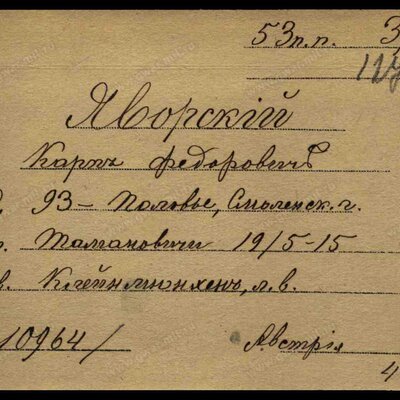 53 п.п. 3
Яворскій
Карпъ Федоровичъ
93 – Паловье, Смоленск. г.
Тамановичи 19/5-15
в. Клейнмюнхенъ, л.в.
10964/ Австрія
4